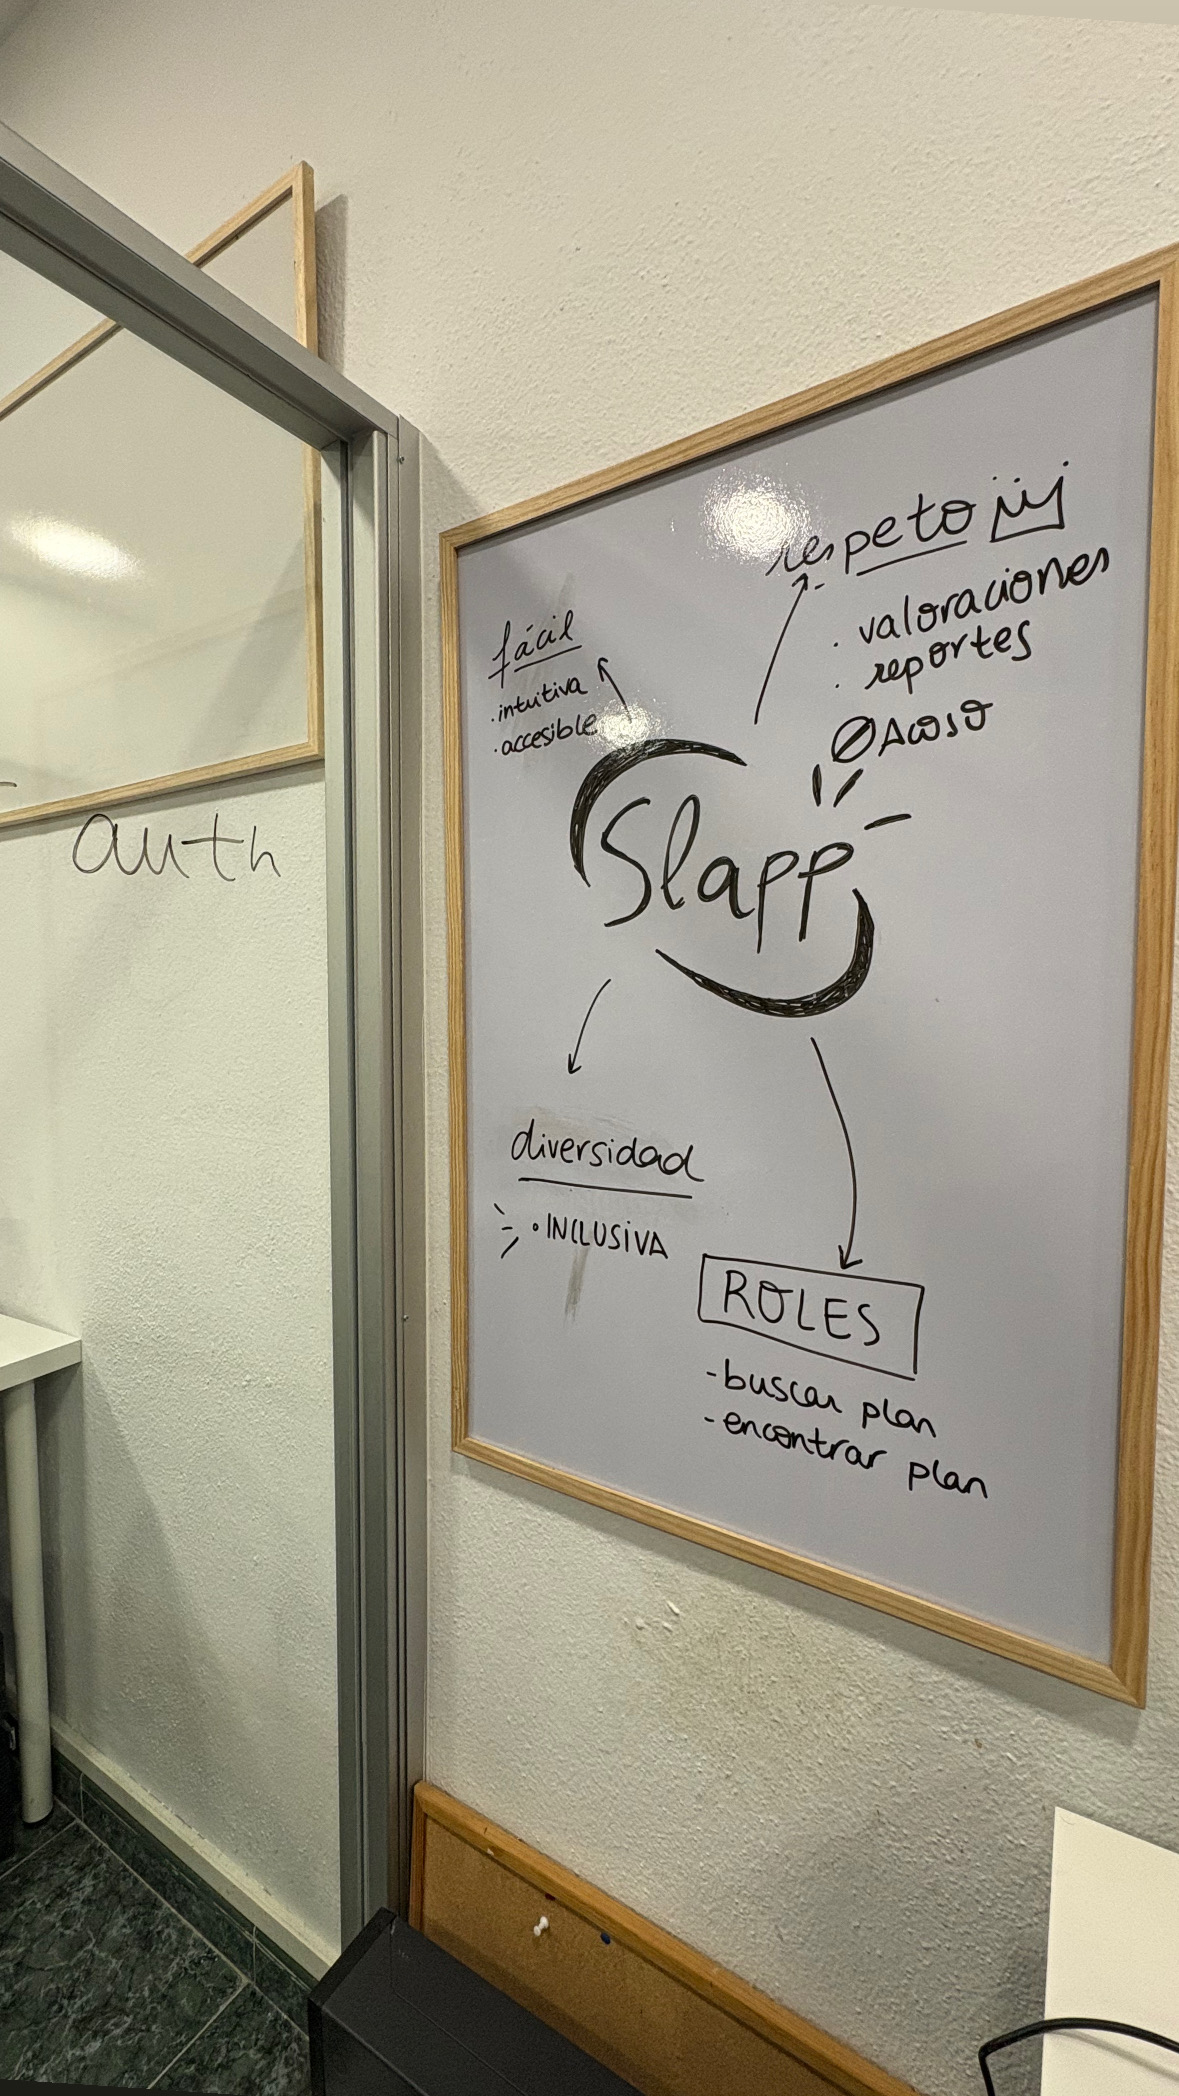 respeto ¡¡¡
· valoraciones
· reportes
Ø Acoso
fácil
· intuitiva
· accesible
Slapp
auth
diversidad
· INCLUSIVA
ROLES
- buscar plan
- encontrar plan